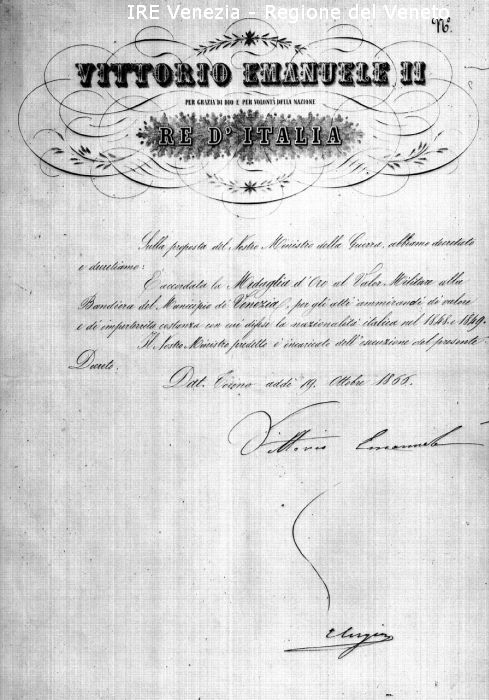 IRE Venezia - Regione del Veneto
N.º
VITTORIO EMANUELE II
PER GRAZIA DI DIO E PER VOLONTÀ DELLA NAZIONE
RE D'ITALIA
Sulla proposta del Nostro Ministro della Guerra, abbiamo decretato
e decretiamo:
È accordata la Medaglia d'Oro al Valor Militare alla
Bandiera del Municipio di Venezia, per gli atti ammirandi di valore
e di impartirità costanza con cui difese la nazionalità italica nel 1848 e 1849.
Il Nostro Ministro predetto è incaricato dell'esecuzione del presente
Decreto.
Dat. Torino addì 19. Ottobre 1866.
Vittorio Emanuele